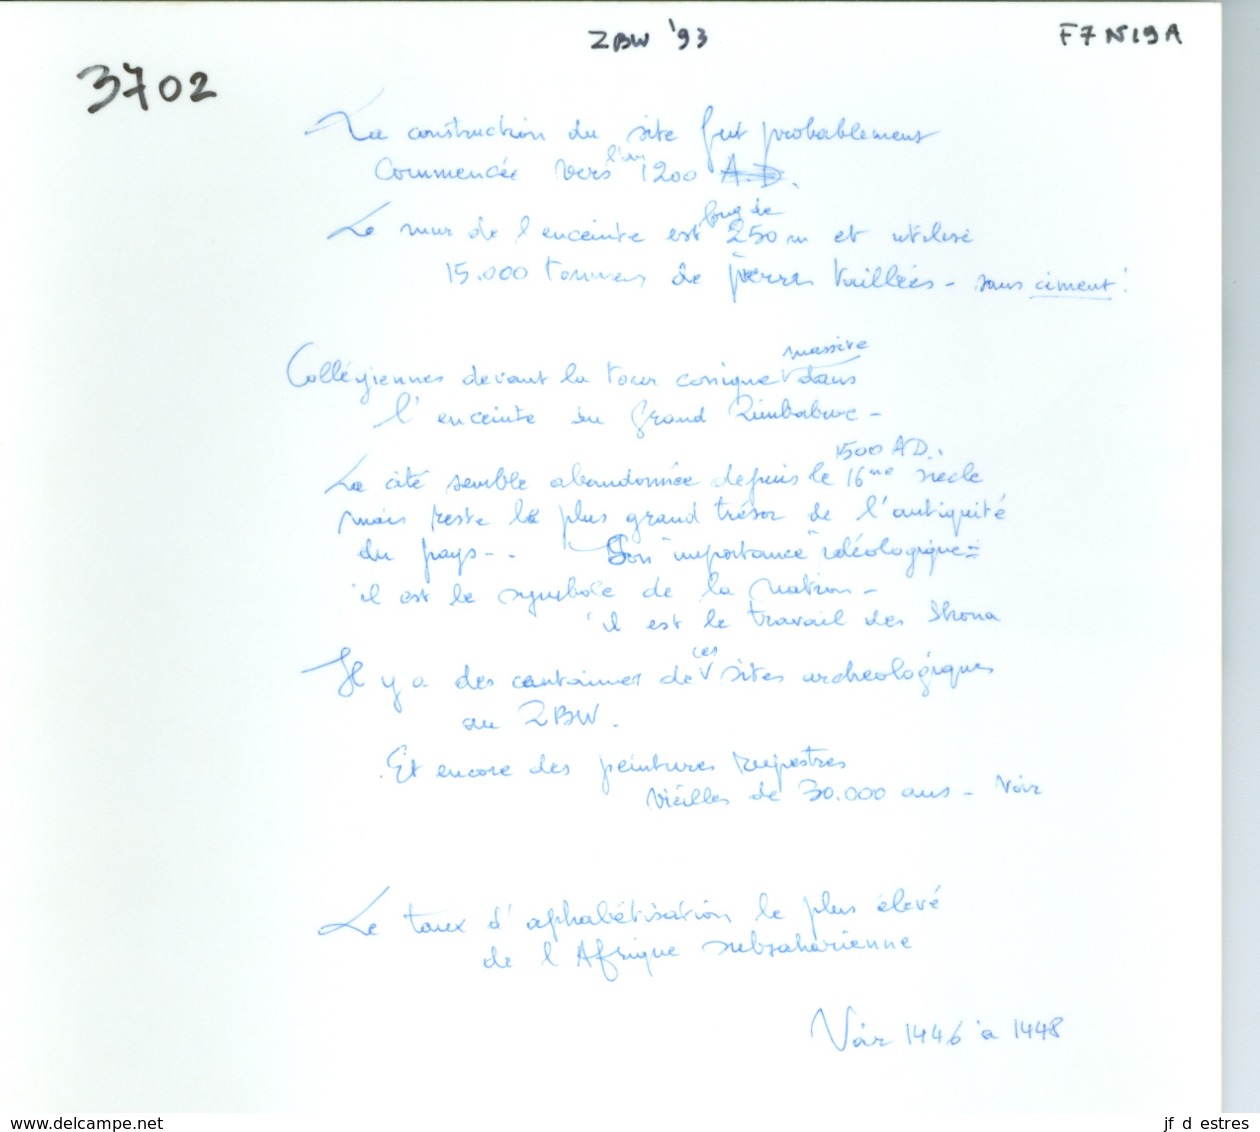 ZBW '93
F7 N19A
3702
La construction du site fut probablement
commencée vers l'an 1200 A.D.
Le mur de l'enceinte est long de 250 m et utilise
15.000 tonnes de pierres taillées - sans ciment !
Collégiennes devant la tour conique massive dans
l'enceinte du Grand Zimbabwe -
1500 AD..
La cité semble abandonnée depuis le 16me siècle
mais reste le plus grand trésor de l'antiquité
du pays - . Son "importance" idéologique =
il est le symbole de la nation -
il est le travail des Shona
Il y a des centaines de ces sites archeologiques
au ZBW.
Et encore des peintures rupestres
vieilles de 30.000 ans - Voir
Le taux d'alphabétisation le plus élevé
de l'Afrique subsaharienne
Voir 1446 à 1448
www.delcampe.net
jf d estres